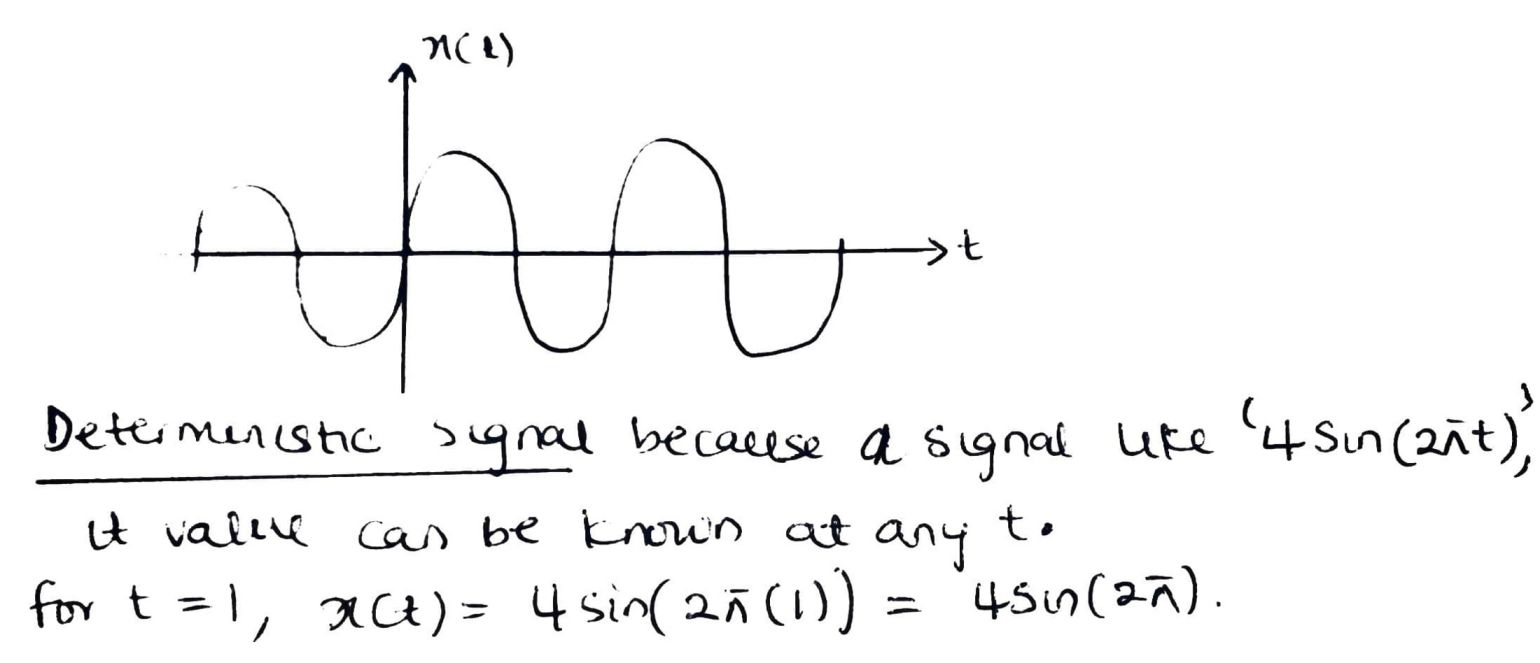 x(t)
t
Deterministic signal because a signal like ‘4 Sin(2πt)’,
it value can be known at any t.
for t = 1, x(t) = 4 sin( 2π (1)) = 4sin(2π).